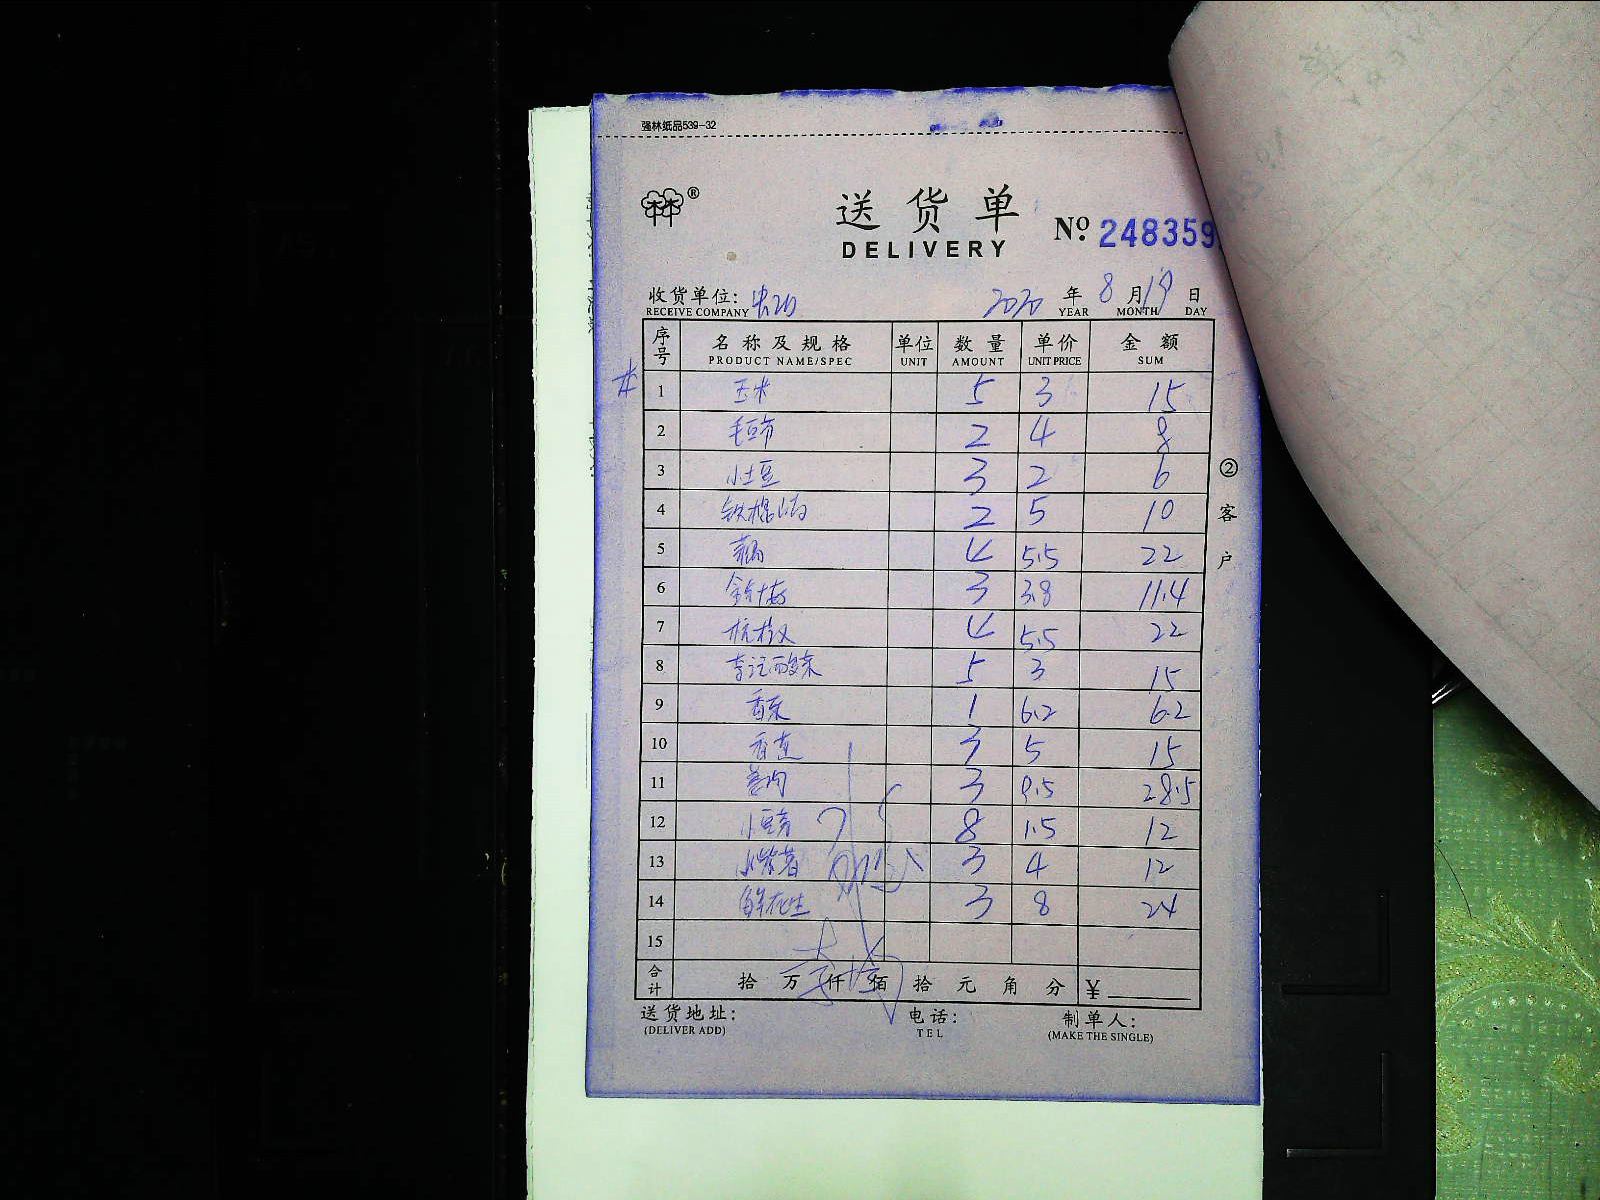 强林纸品539-32
林®
送货单
DELIVERY
Nº 248359
收货单位: 2020 年 8 月 19 日
RECEIVE COMPANY YEAR MONTH DAY
序号 名称及规格 单位 数量 单价 金额
PRODUCT NAME/SPEC UNIT AMOUNT UNIT PRICE SUM
1 玉米 5 3 15
2 毛豆节 2 4 8
3 小土豆 3 2 6
4 铁棍山药 2 5 10
5 4 5.5 22
6 3 3.8 11.4
7 杭椒 4 5.5 22
8 李记酸菜 5 3 15
9 香菜 1 6.2 6.2
10 3 5 15
11 姜肉 3 9.5 28.5
12 小豆芽 8 1.5 12
13 小紫薯 3 4 12
14 鲜花生 3 8 24
15
合计 拾 万 仟 佰 拾 元 角 分 ¥
送货地址: 电话: 制单人:
(DELIVER ADD) TEL (MAKE THE SINGLE)
②客户